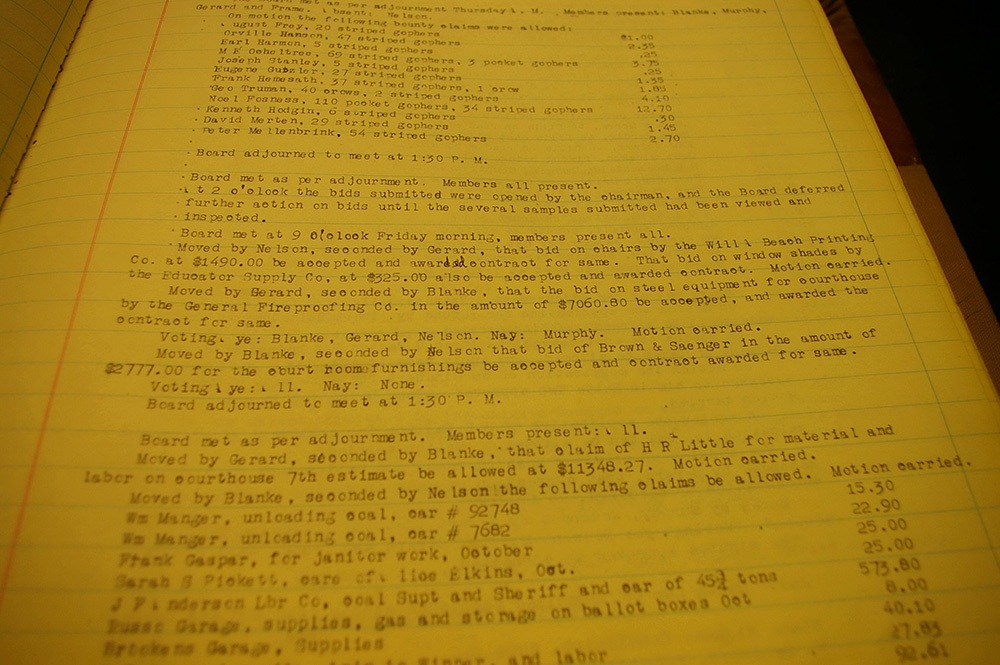 met as per adjournment Thursday . M. Members present: Blanke, Murphy.
Gerard and Frame. bsent: Nelson.
On motion the following bounty claims were allowed:
ugust Frey, 20 striped gophers $1.00
Orville Hansen, 47 striped gophers 2.35
Earl Harmon, 5 striped gophers .25
M E Ocheltree, 69 striped gophers, 3 pocket gophers 3.75
Joseph Stanley, 5 striped gophers .25
Eugene Gutzler, 27 striped gophers 1.35
Frank Hemesath, 37 striped gophers, 1 crow 1.85
Geo Truman, 40 crows, 2 striped gophers 4.10
Noel Fosness, 110 pocket gophers, 34 striped gophers 12.70
Kenneth Hodgin, 6 striped gophers .30
David Merten, 29 striped gophers 1.45
Peter Mellenbrink, 54 striped gophers 2.70
Board adjourned to meet at 1:30 P. M.
Board met as per adjournment. Members all present.
t 2 o'clock the bids submitted were opened by the chairman, and the Board deferred
further action on bids until the several samples submitted had been viewed and
inspected.
Board met at 9 o'clock Friday morning, members present all.
Moved by Nelson, seconded by Gerard, that bid on chairs by the Will A Beach Printing
Co. at $1490.00 be accepted and awarded contract for same. That bid on window shades by
the Educator Supply Co, at $325.00 also be accepted and awarded contract. Motion carried.
Moved by Gerard, seconded by Blanke, that the bid on steel equipment for courthouse
by the General Fireproofing Co. in the amount of $7060.80 be accepted, and awarded the
contract for same.
Voting ye: Blanke, Gerard, Nelson. Nay: Murphy. Motion carried.
Moved by Blanke, seconded by Nelson that bid of Brown & Saenger in the amount of
$2777.00 for the court room furnishings be accepted and contract awarded for same.
Voting ye: ll. Nay: None.
Board adjourned to meet at 1:30 P. M.
Board met as per adjournment. Members present: ll.
Moved by Gerard, seconded by Blanke, that claim of H R Little for material and
labor on courthouse 7th estimate be allowed at $11348.27. Motion carried.
Moved by Blanke, seconded by Nelson the following claims be allowed. Motion carried.
Wm Manger, unloading coal, car # 92748 15.30
Wm Manger, unloading coal, car # 7682 22.90
Frank Gaspar, for janitor work, October 25.00
Sarah S Pickett, care of lice Elkins, Oct. 25.00
J F nderson Lbr Co, coal Supt and Sheriff and car of 45¾ tons 573.80
Russo Garage, supplies, gas and storage on ballot boxes Oct 8.00
Brockens Garage, Supplies 40.10
Winner, and labor 27.85
92.61